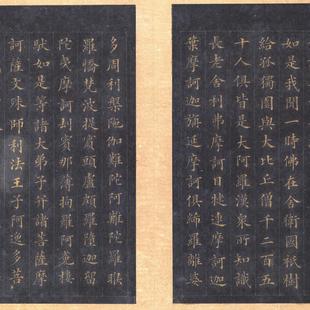 如是我聞一時佛在舍衛國祇樹
給孤獨園與大比丘僧千二百五
十人俱皆是大阿羅漢衆所知識
長老舍利弗摩訶目犍連摩訶迦
葉摩訶迦旃延摩訶俱絺羅離婆
多周利槃陁伽難陀阿難陀羅睺
羅憍梵波提賓頭盧頗羅墮迦留
陀夷摩訶劫賓那薄拘羅阿㝹樓
馱如是等諸大弟子并諸菩薩摩
訶薩文殊師利法王子阿逸多菩